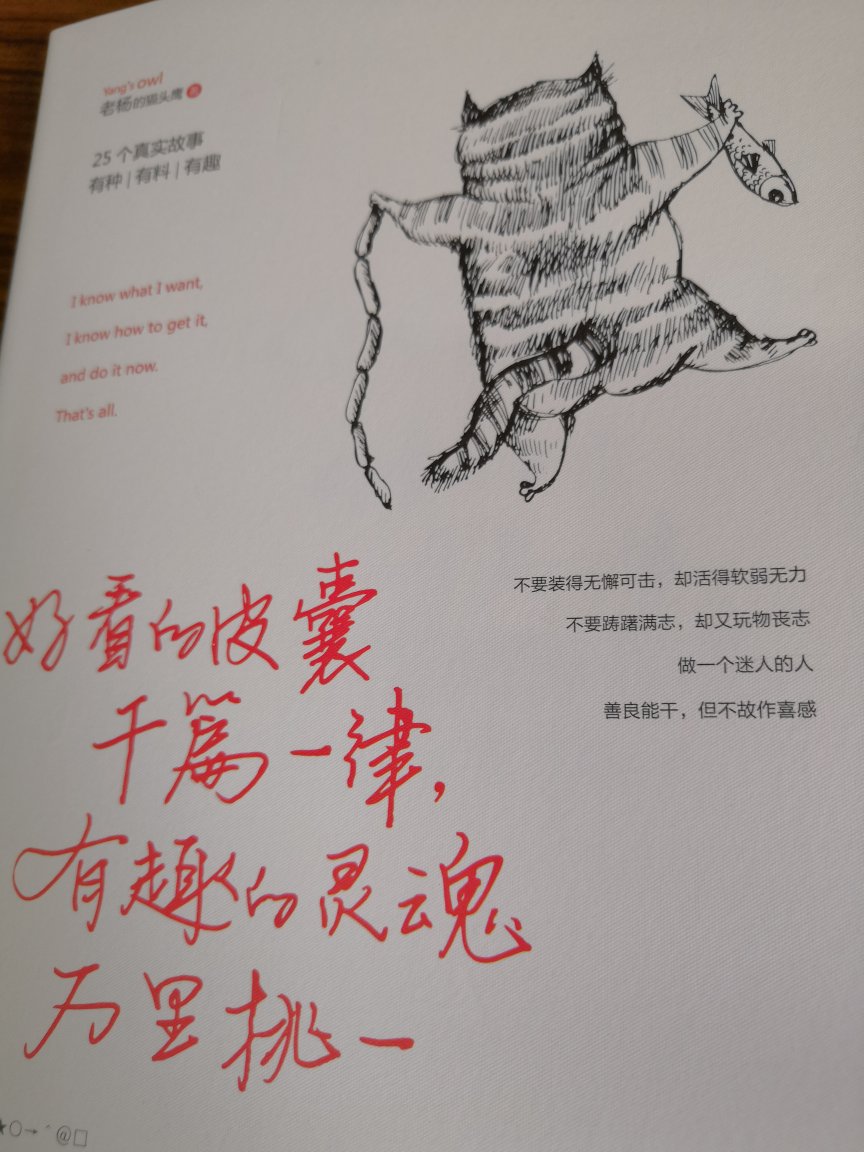 Yang's owl
老杨的猫头鹰 著
25 个真实故事
有种 | 有料 | 有趣
I know what I want,
I know how to get it,
and do it now.
That's all.
不要装得无懈可击，却活得软弱无力
不要踌躇满志，却又玩物丧志
做一个迷人的人
善良能干，但不故作喜感
好看的皮囊
千篇一律，
有趣的灵魂
万里挑一
★〇→＾@□